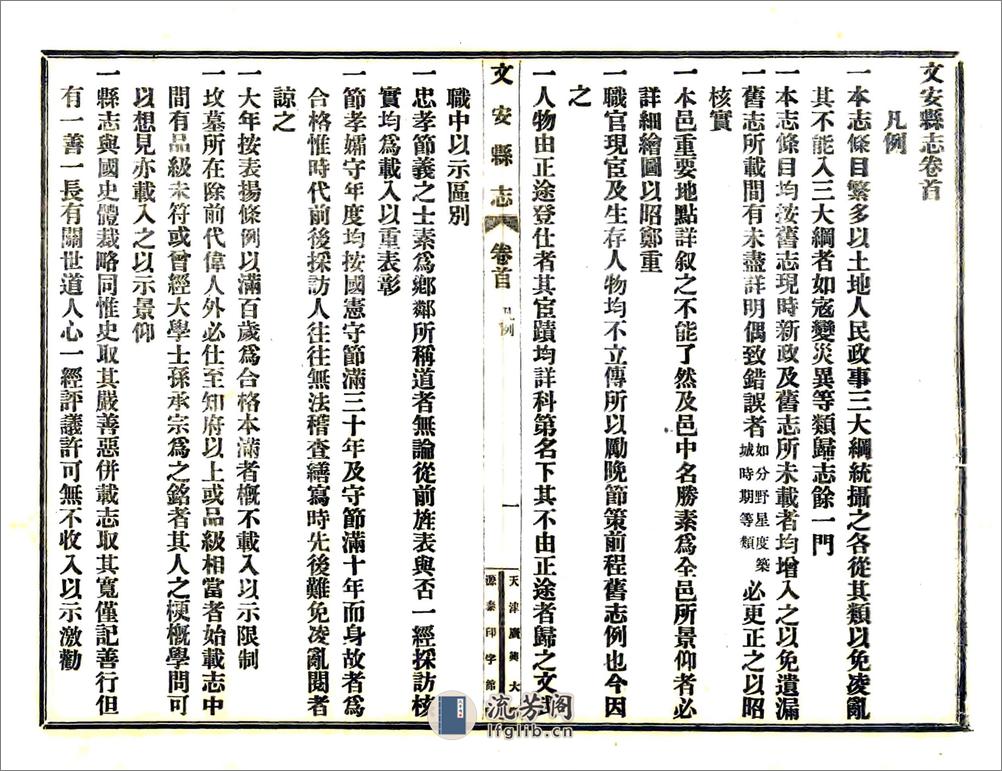 文安縣志卷首
凡例
一本志條目繁多以土地人民政事三大綱統攝之各從其類以免凌亂
其不能入三大綱者如寇變災異等類歸志餘一門
一本志條目均按舊志現時新政及舊志所未載者均增入之以免遺漏
一舊志所載間有未盡詳明偶致錯誤者如分野星度築城時期等類必更正之以昭
核實
一本邑重要地點詳叙之不能了然及邑中名勝素爲全邑所景仰者必
詳細繪圖以昭鄭重
一職官現宦及生存人物均不立傳所以勵晚節策前程舊志例也今因
之
一人物由正途登仕者其宦蹟均詳科第名下其不由正途者歸之文武
文安縣志 卷首 凡例 一 天津廣興大源泰印字館
職中以示區別
一忠孝節義之士素爲鄉鄰所稱道者無論從前旌表與否一經採訪核
實均爲載入以重表彰
一節孝孀守年度均按國憲守節滿三十年及守節滿十年而身故者爲
合格惟時代前後採訪人往往無法稽查繕寫時先後難免凌亂閱者
諒之
一大年按表揚條例以滿百歲爲合格本滿者概不載入以示限制
一坟墓所在除前代偉人外必仕至知府以上或品級相當者始載志中
間有品級未符或曾經大學士孫承宗爲之銘者其人之梗概學問可
以想見亦載入之以示景仰
一縣志與國史體裁略同惟史取其嚴善惡併載志取其寬僅記善行但
有一善一長有關世道人心一經評議許可無不收入以示激勸
流芳阁
lfglib.cn